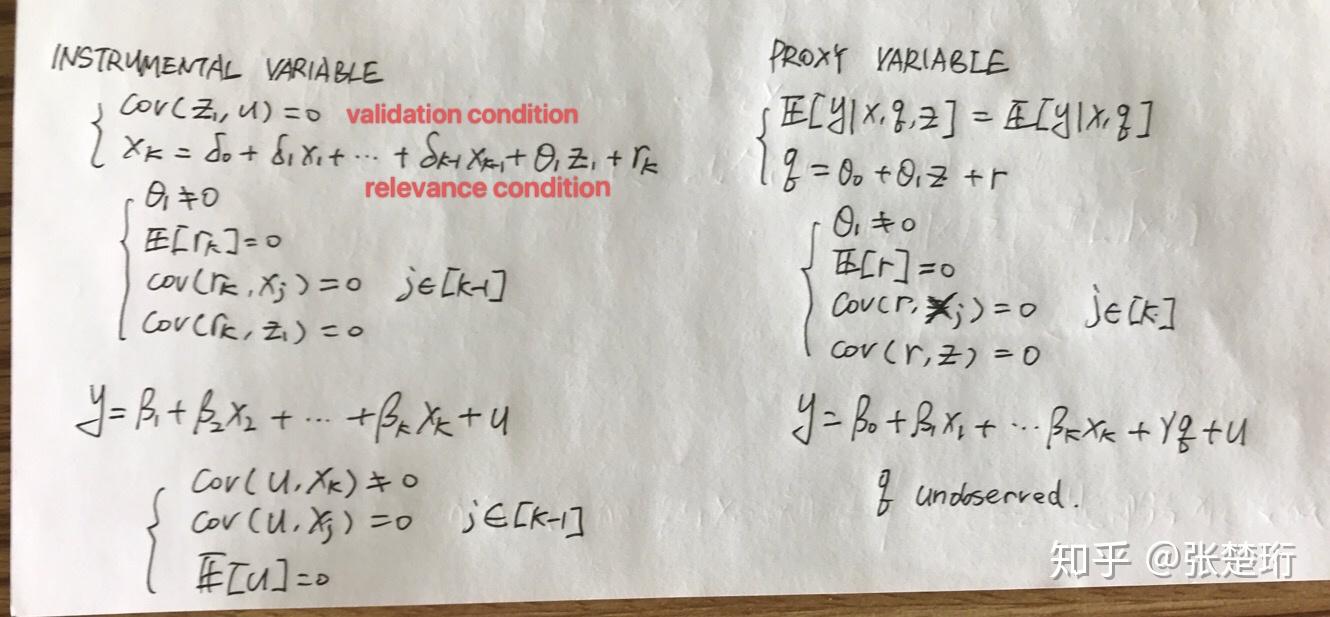 INSTRUMENTAL VARIABLE
cov(z₁, u) = 0 validation condition
x_k = δ₀ + δ₁x₁ + ⋯ + δ_{k-1}x_{k-1} + θ₁z₁ + r_k
relevance condition
θ₁ ≠ 0
𝔼[r_k] = 0
cov(r_k, x_j) = 0 j∈[k-1]
cov(r_k, z₁) = 0
y = β₁ + β₂x₂ + ⋯ + β_k x_k + u
cov(u, x_k) ≠ 0
cov(u, x_j) = 0 j∈[k-1]
𝔼[u] = 0
PROXY VARIABLE
𝔼[y|x, q, z] = 𝔼[y|x, q]
q = θ₀ + θ₁z + r
θ₁ ≠ 0
𝔼[r] = 0
cov(r, x_j) = 0 j∈[k]
cov(r, z) = 0
y = β₀ + β₁x₁ + ⋯ β_k x_k + γq + u
q unobserved.
知乎 @张楚珩